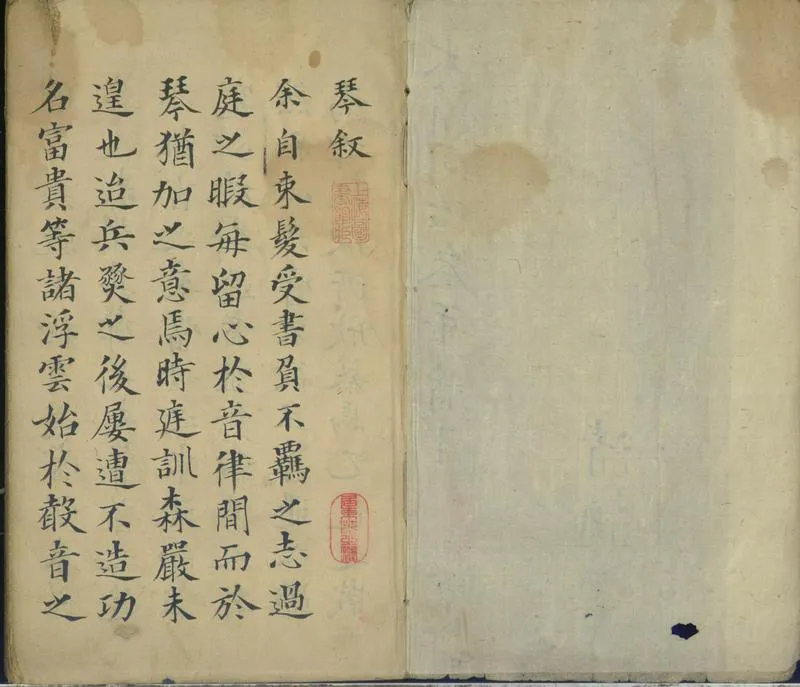 琴叙
余自束髮受書負不羈之志過
庭之暇每留心於音律間而於
琴猶加之意焉時庭訓森嚴未
遑也迨兵燹之後屢遭不造功
名富貴等諸浮雲始於聲音之